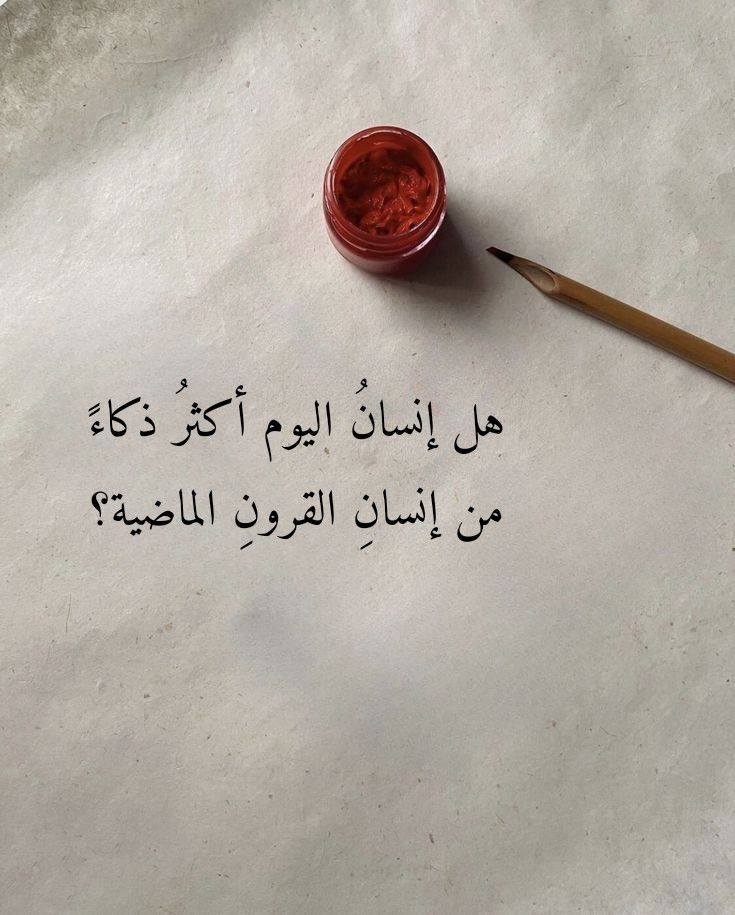 هل إنسانُ اليوم أكثرُ ذكاءً
من إنسانِ القرونِ الماضية؟